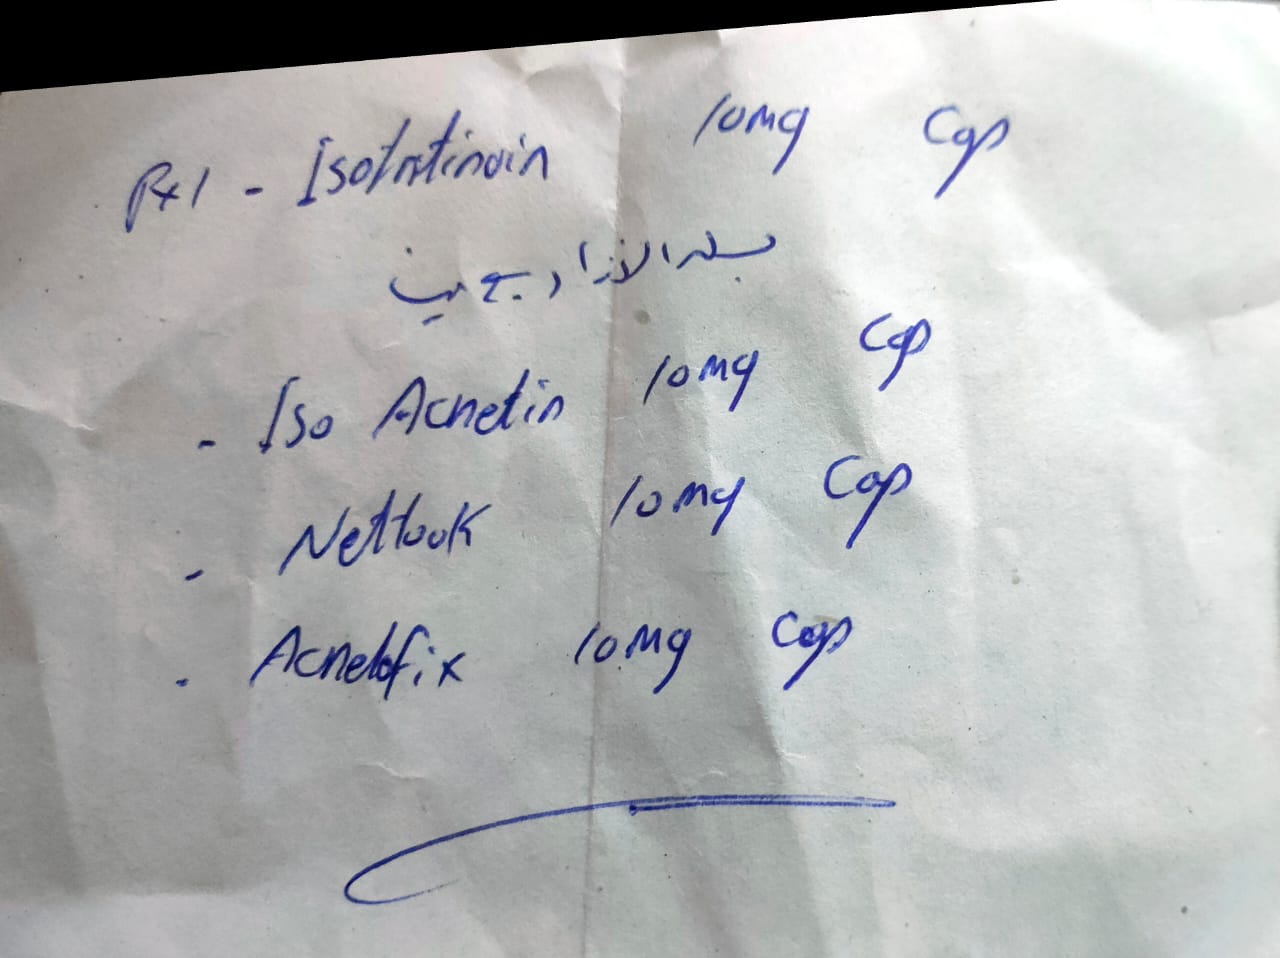 Rx1 - Isotretinoin 10mg Cap
- Iso Acnetin 10mg Cap
- Netlook 10mg Cap
- Acnelofix 10mg Cap